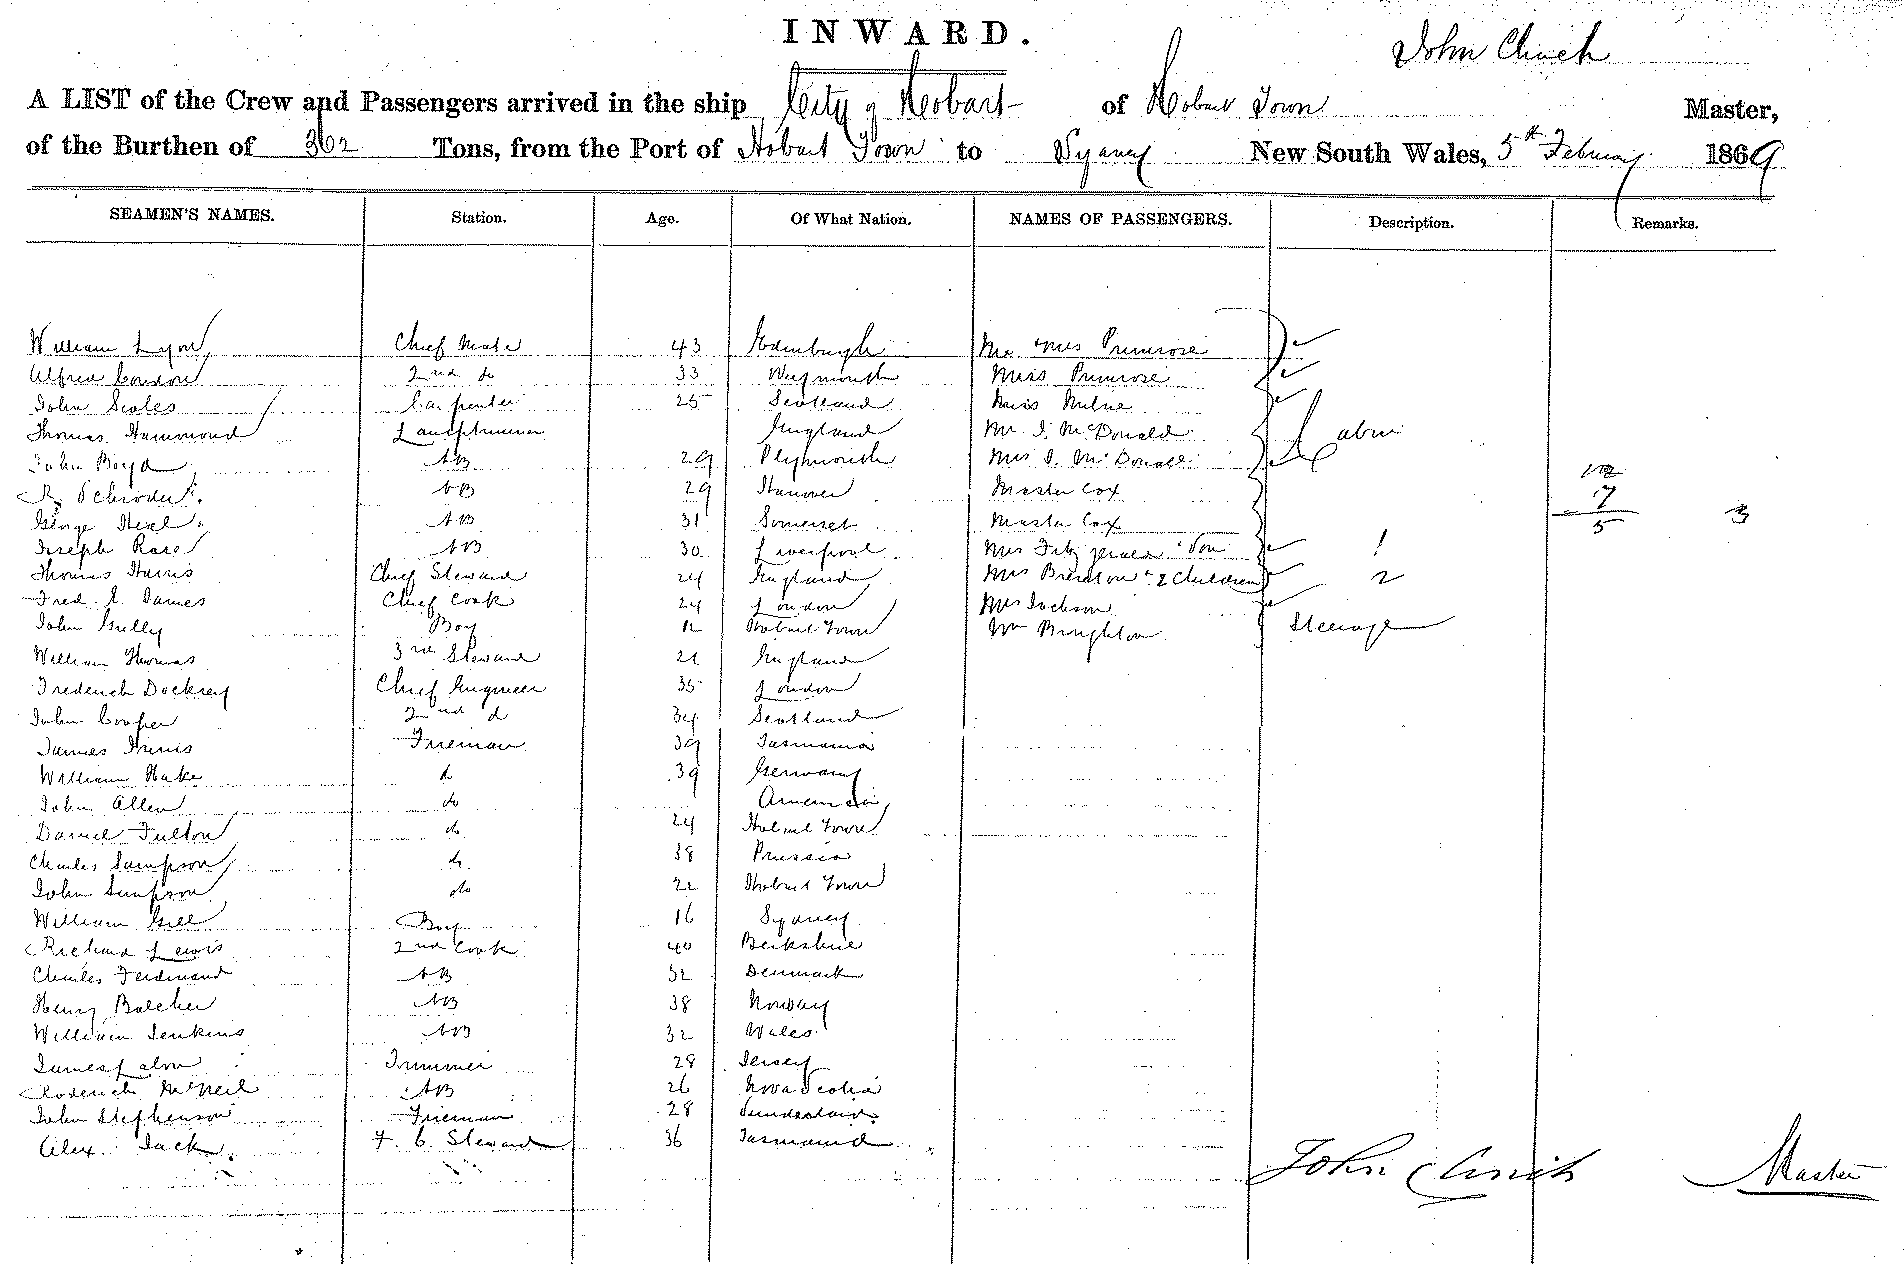 INWARD.
John Clinch
A LIST of the Crew and Passengers arrived in the ship City of Hobart of Hobart Town Master,
of the Burthen of 362 Tons, from the Port of Hobart Town to Sydney New South Wales, 5th February 1869
SEAMEN'S NAMES. Station. Age. Of What Nation. NAMES OF PASSENGERS. Description. Remarks.
William Lyon Chief Mate 43 Edinburgh Mr & Mrs Primrose
Alfred Condon 2nd do 33 Weymouth Miss Primrose
John Scoles Carpenter 25 Scotland Miss Milne
Thomas Hammond Lamptrimmer England Mr. J. McDonald Cabin
John Boyd AB 29 Plymouth Mrs J. McDonald
R. Schroder AB 29 Hanover Master Cox 12
7
George AB 31 Somerset Master Cox 5 3
Joseph Rose AB 30 Liverpool Mrs Fitzgerald & Son 1
Thomas Harris Chief Steward 24 England Mrs Brenton & 2 Children 2
Fred. E. James Chief Cook 24 London Mrs Jackson
John Gully Boy 12 Hobart Town Wm Brighton Steerage
William Thomas 3rd Steward 21 England
Frederick Dockrey Chief Engineer 35 London
John Cooper 2nd d 34 Scotland
James Fireman 39 Tasmania
William Hake d 39 Germany
John Allen do America
Daniel Fulton do 24 Hobart Town
Charles Sampson do 38 Prussia
John Simpson do 22 Hobart Town
William Gill Boy 16 Sydney
Richard Lewis 2nd Cook 40 Berkshire
Charles Ferdinand AB 32 Denmark
Henry Balcher AB 38 Norway
William Jenkins AB 32 Wales
James Trimmer 28 Jersey
Roderick McNeil AB 26 Nova Scotia
John Stephenson Fireman 28 Sunderland
Alex. Jack F. C. Steward 36 Tasmania
John Clinch Master